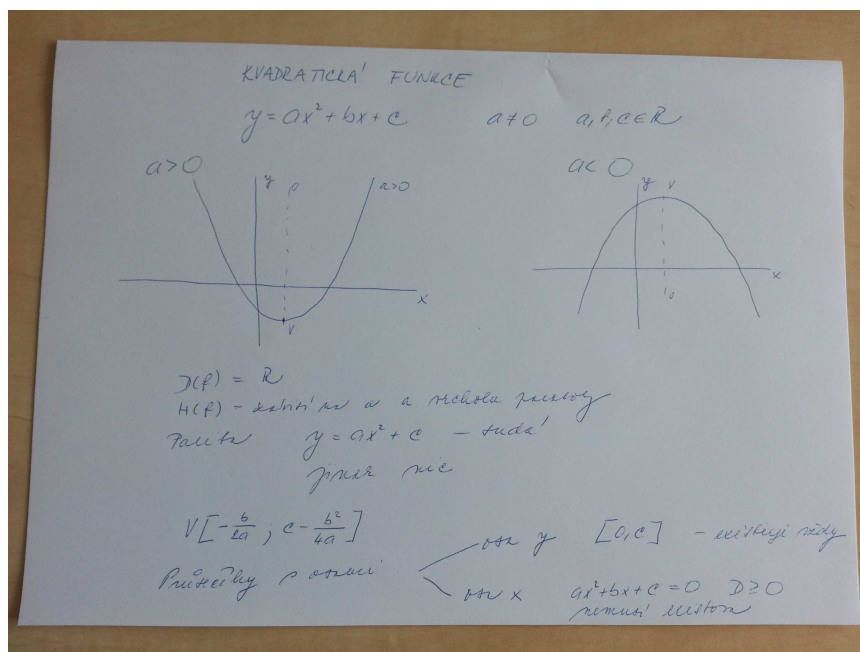 KVADRATICKÁ FUNKCE
y = ax² + bx + c a ≠ 0 a, b, c ∈ R
a > 0
y
o
a > 0
x
V
a < 0
y
V
x
o
D(f) = R
H(f) – závisí na a a vrcholu paraboly
Parita y = ax² + c – sudá
jinak nic
V[-b/2a ; c - b²/4a]
Průsečíky s osami
osa y [0, c] – existuje vždy
osa x ax² + bx + c = 0 D ≥ 0
nemusí existovat